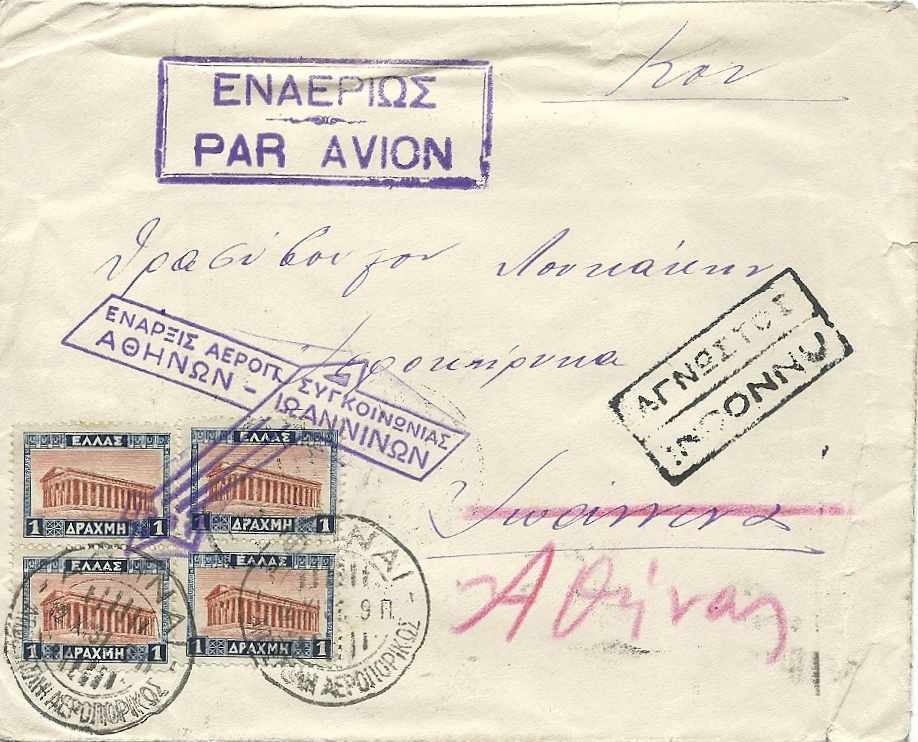 ΕΝΑΕΡΙΩΣ
PAR AVION
Κον
Θρασύβουλον Λουκάκην
Ιεροκήρυκα
Ιωάννινα
Αθήνας
ΕΝΑΡΞΙΣ ΑΕΡΟΠ. ΣΥΓΚΟΙΝΩΝΙΑΣ
ΑΘΗΝΩΝ - ΙΩΑΝΝΙΝΩΝ
ΑΓΝΩΣΤΟΣ
INCONNU
ΕΛΛΑΣ
1 ΔΡΑΧΜΗ 1
ΕΛΛΑΣ
1 ΔΡΑΧΜΗ 1
ΕΛΛΑΣ
1 ΔΡΑΧΜΗ 1
ΕΛΛΑΣ
1 ΔΡΑΧΜΗ 1
ΑΕΡΟΠΟΡΙΚΩΣ
9 Π.
ΑΕΡΟΠΟΡΙΚΩΣ